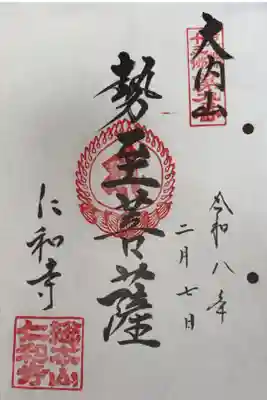 大内山
令和八年
二月七日
勢至菩薩
仁和寺
總本山
仁和寺